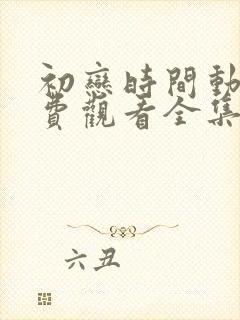 初戀時間動
費觀看全集
六丑